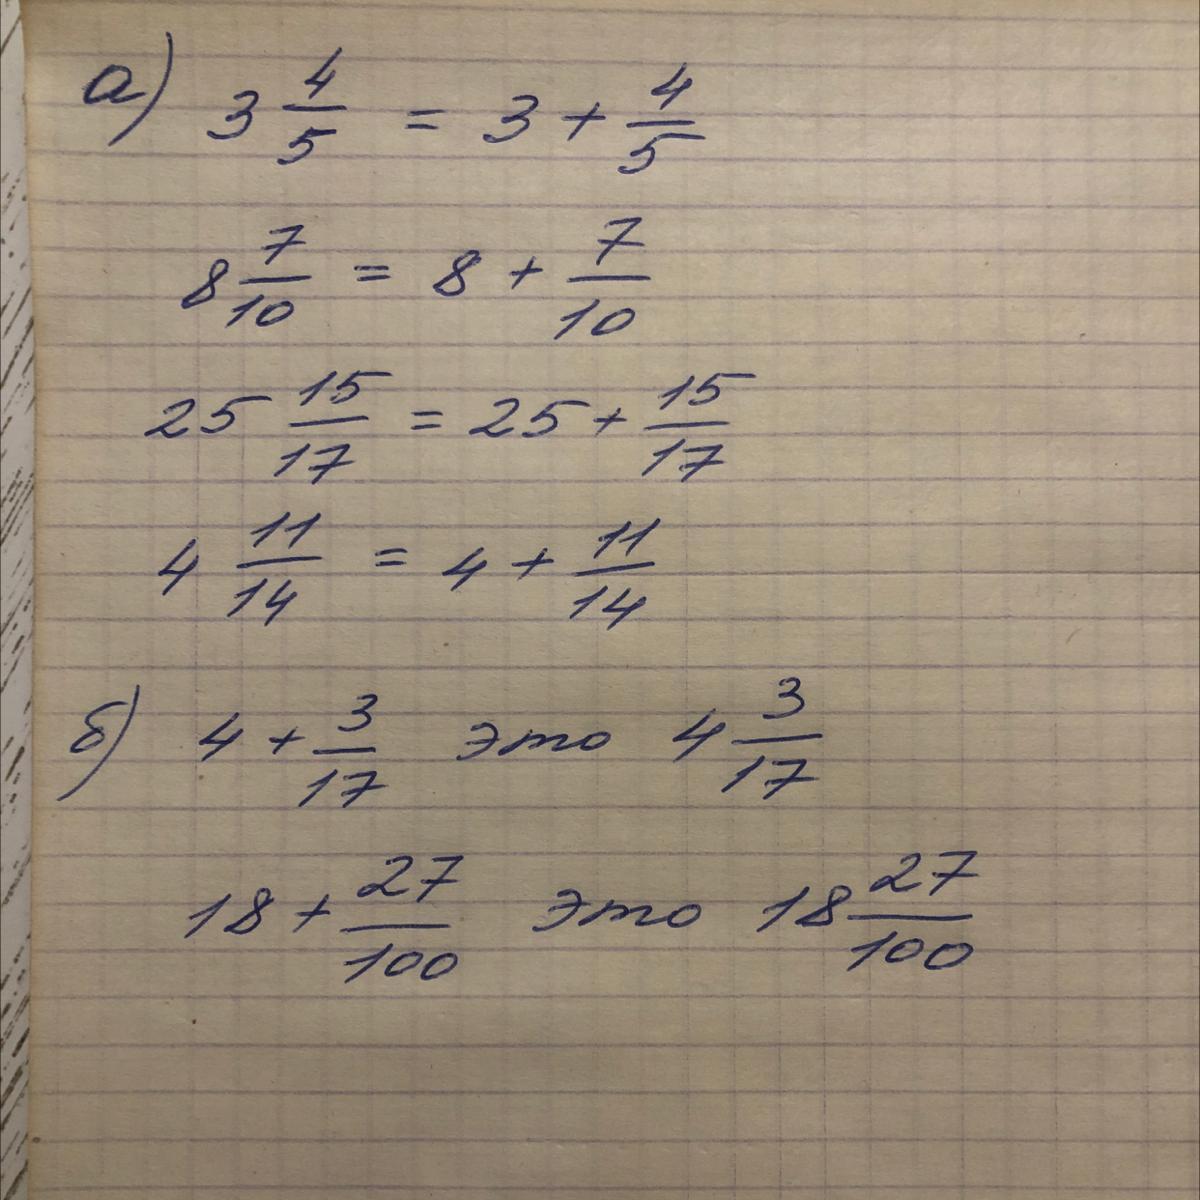 а) 3 4/5 = 3 + 4/5
8 7/10 = 8 + 7/10
25 15/17 = 25 + 15/17
4 11/14 = 4 + 11/14
б) 4 + 3/17 это 4 3/17
18 + 27/100 это 18 27/100